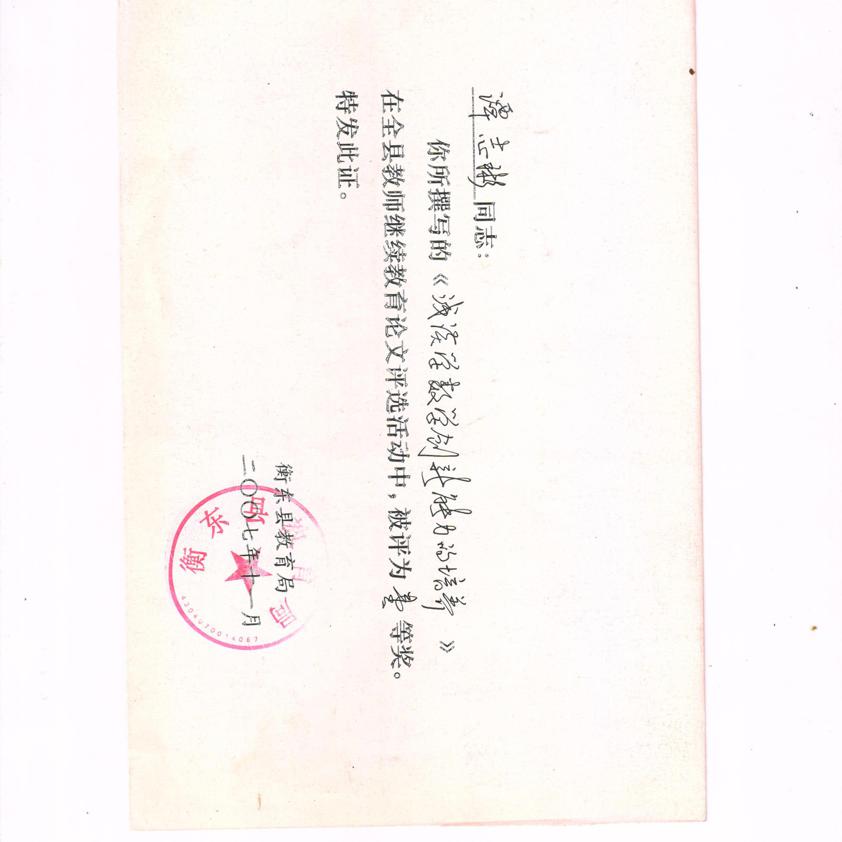 谭志彬同志：
你所撰写的《浅谈学数学创新能力的培养》
在全县教师继续教育论文评选活动中，被评为壹等奖。
特发此证。
衡东县教育局
二〇〇七年十一月
4304070014067